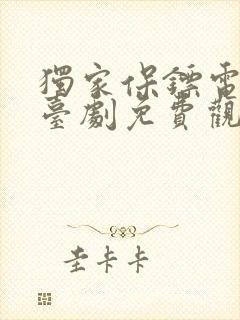 獨家保鏢電
臺劇免費觀
圭卡卡